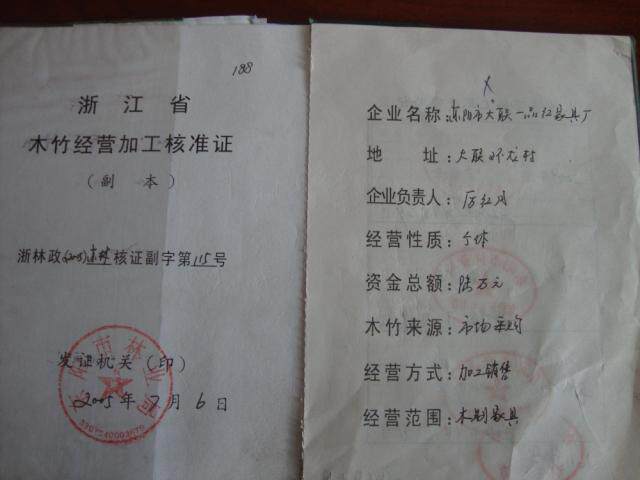 188
浙江省
木竹经营加工核准证
（副 本）
浙林政(2005)东林核证副字第115号
发证机关（印）
2005年7月6日
3307540003570
企业名称：东阳市大联一品红家具厂
地 址：大联环龙村
企业负责人：厉红凤
经营性质：个体
资金总额：陆万元
木竹来源：市场采购
经营方式：加工销售
经营范围：木制家具